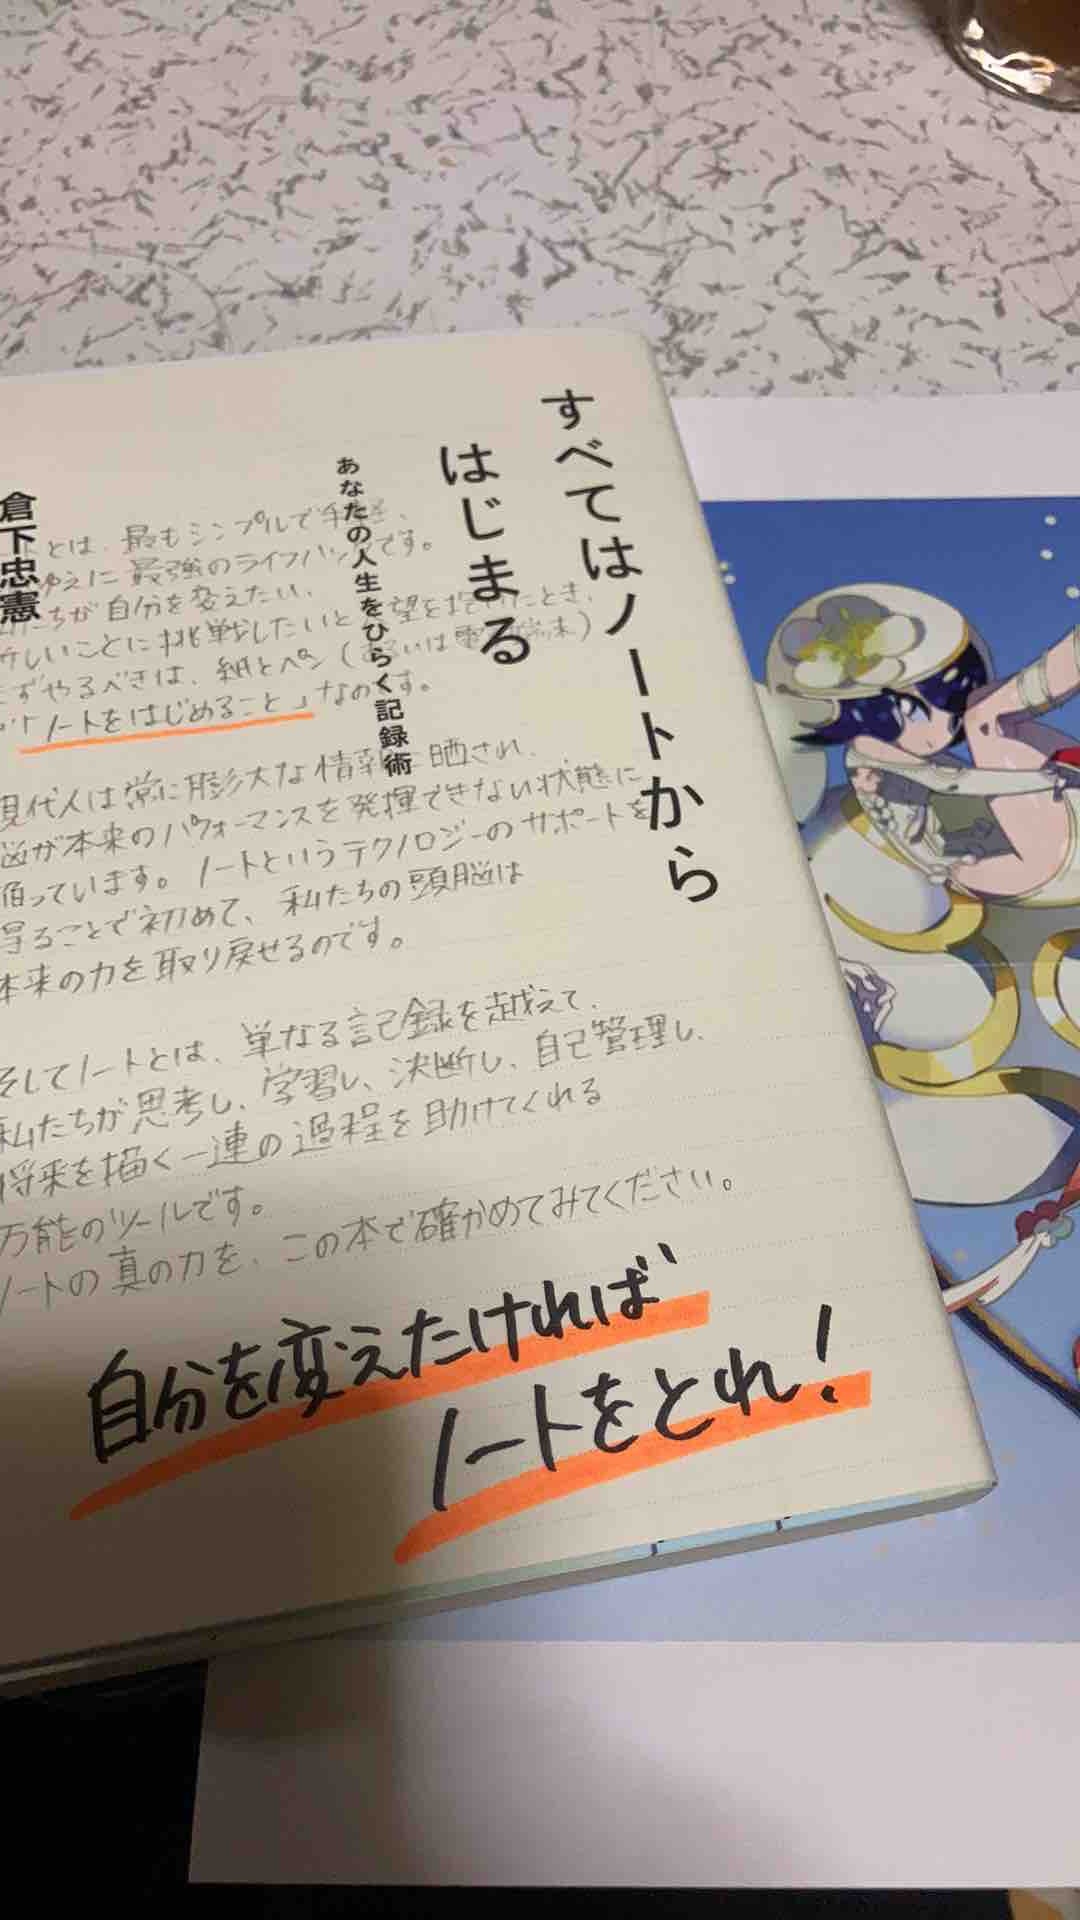 すべてはノートから
はじまる
あなたの人生をひらく記録術
倉下忠憲
とは、最もシンプルで手
ゆえに最強のライフハックです。
たちが自分を変えたい、
しいことに挑戦したいと 望を たとき、
ずやるべきは、紙とペン( るいは電 端末)
「ノートをはじめること」なのです。
現代人は常に膨大な情報に晒され、
脳が本来のパフォーマンスを発揮できない状態に
陥っています。ノートというテクノロジーのサポートを
得ることで初めて、私たちの頭脳は
本来の力を取り戻せるのです。
そしてノートとは、単なる記録を越えて、
私たちが思考し、学習し、決断し、自己管理し、
将来を描く一連の過程を助けてくれる
万能のツールです。
ノートの真の力を、この本で確かめてみてください。
自分を変えたければ
ノートをとれ!